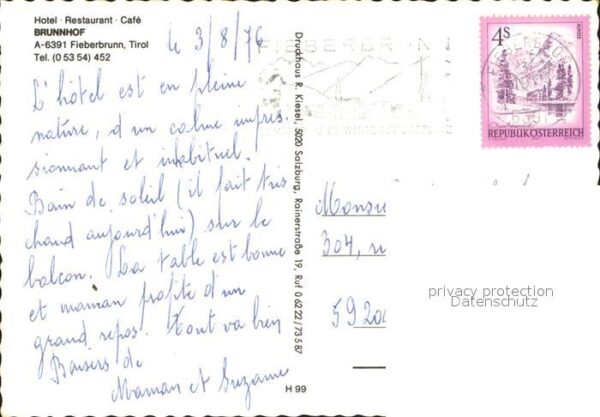 Hotel · Restaurant · Café
BRUNNHOF
A-6391 Fieberbrunn, Tirol
Tel. (0 53 54) 452
le 3/8/76
L'hôtel est en pleine
nature, d'un calme impres
sionnant et inhabituel.
Bain de soleil (il fait très
chaud aujourd'hui) sur le
balcon. La table est bonne
et maman profite d'un
grand repos. Tout va bien
Baisers de
Maman et Suzanne
Druckhaus R. Kiesel, 5020 Salzburg, Rainerstraße 19, Ruf 0 62 22 / 73 5 87
H 99
FIEBERBRUNN
4S
REPUBLIK ÖSTERREICH
Monsie
304, r
5920
privacy protection
Datenschutz